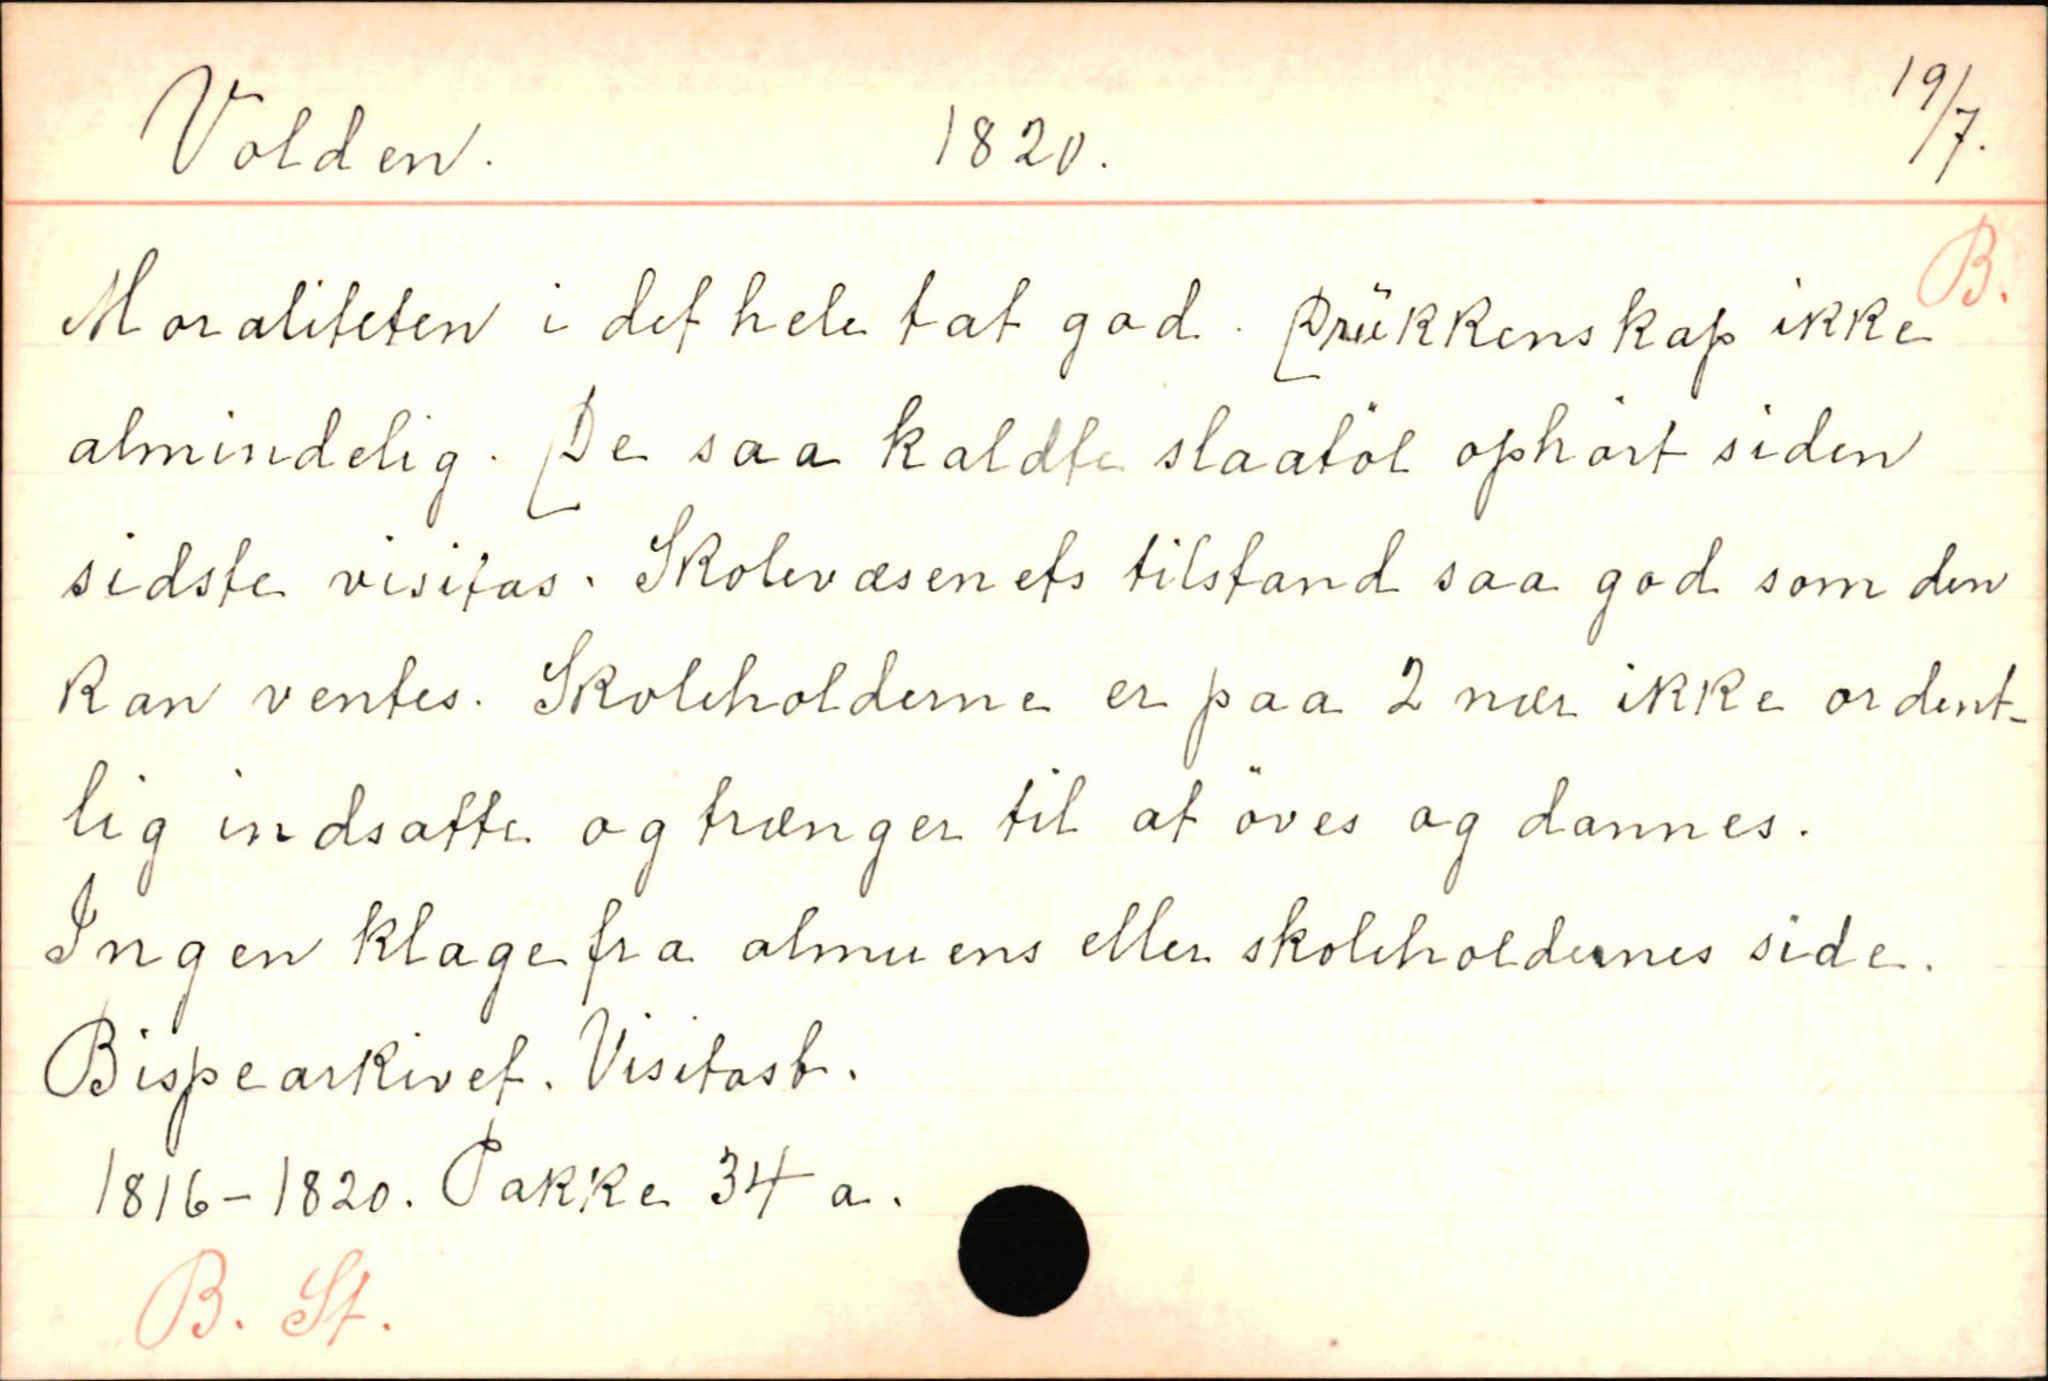 Volden. 1820. 19/7.
B.
Moraliteten i det hele tat god. Drükkenskap ikke
almindelig. De saa kaldte slaatöl ophört siden
sidste visitas. Skolevæsenets tilstand saa god som den
kan ventes. Skoleholderne er paa 2 nær ikke ordent-
lig indsatte og trænger til at öves og dannes.
Ingen klage fra almuens eller skoleholdernes side.
Bispearkivet. Visitasb.
1816-1820. Pakke 34 a.
B. St.